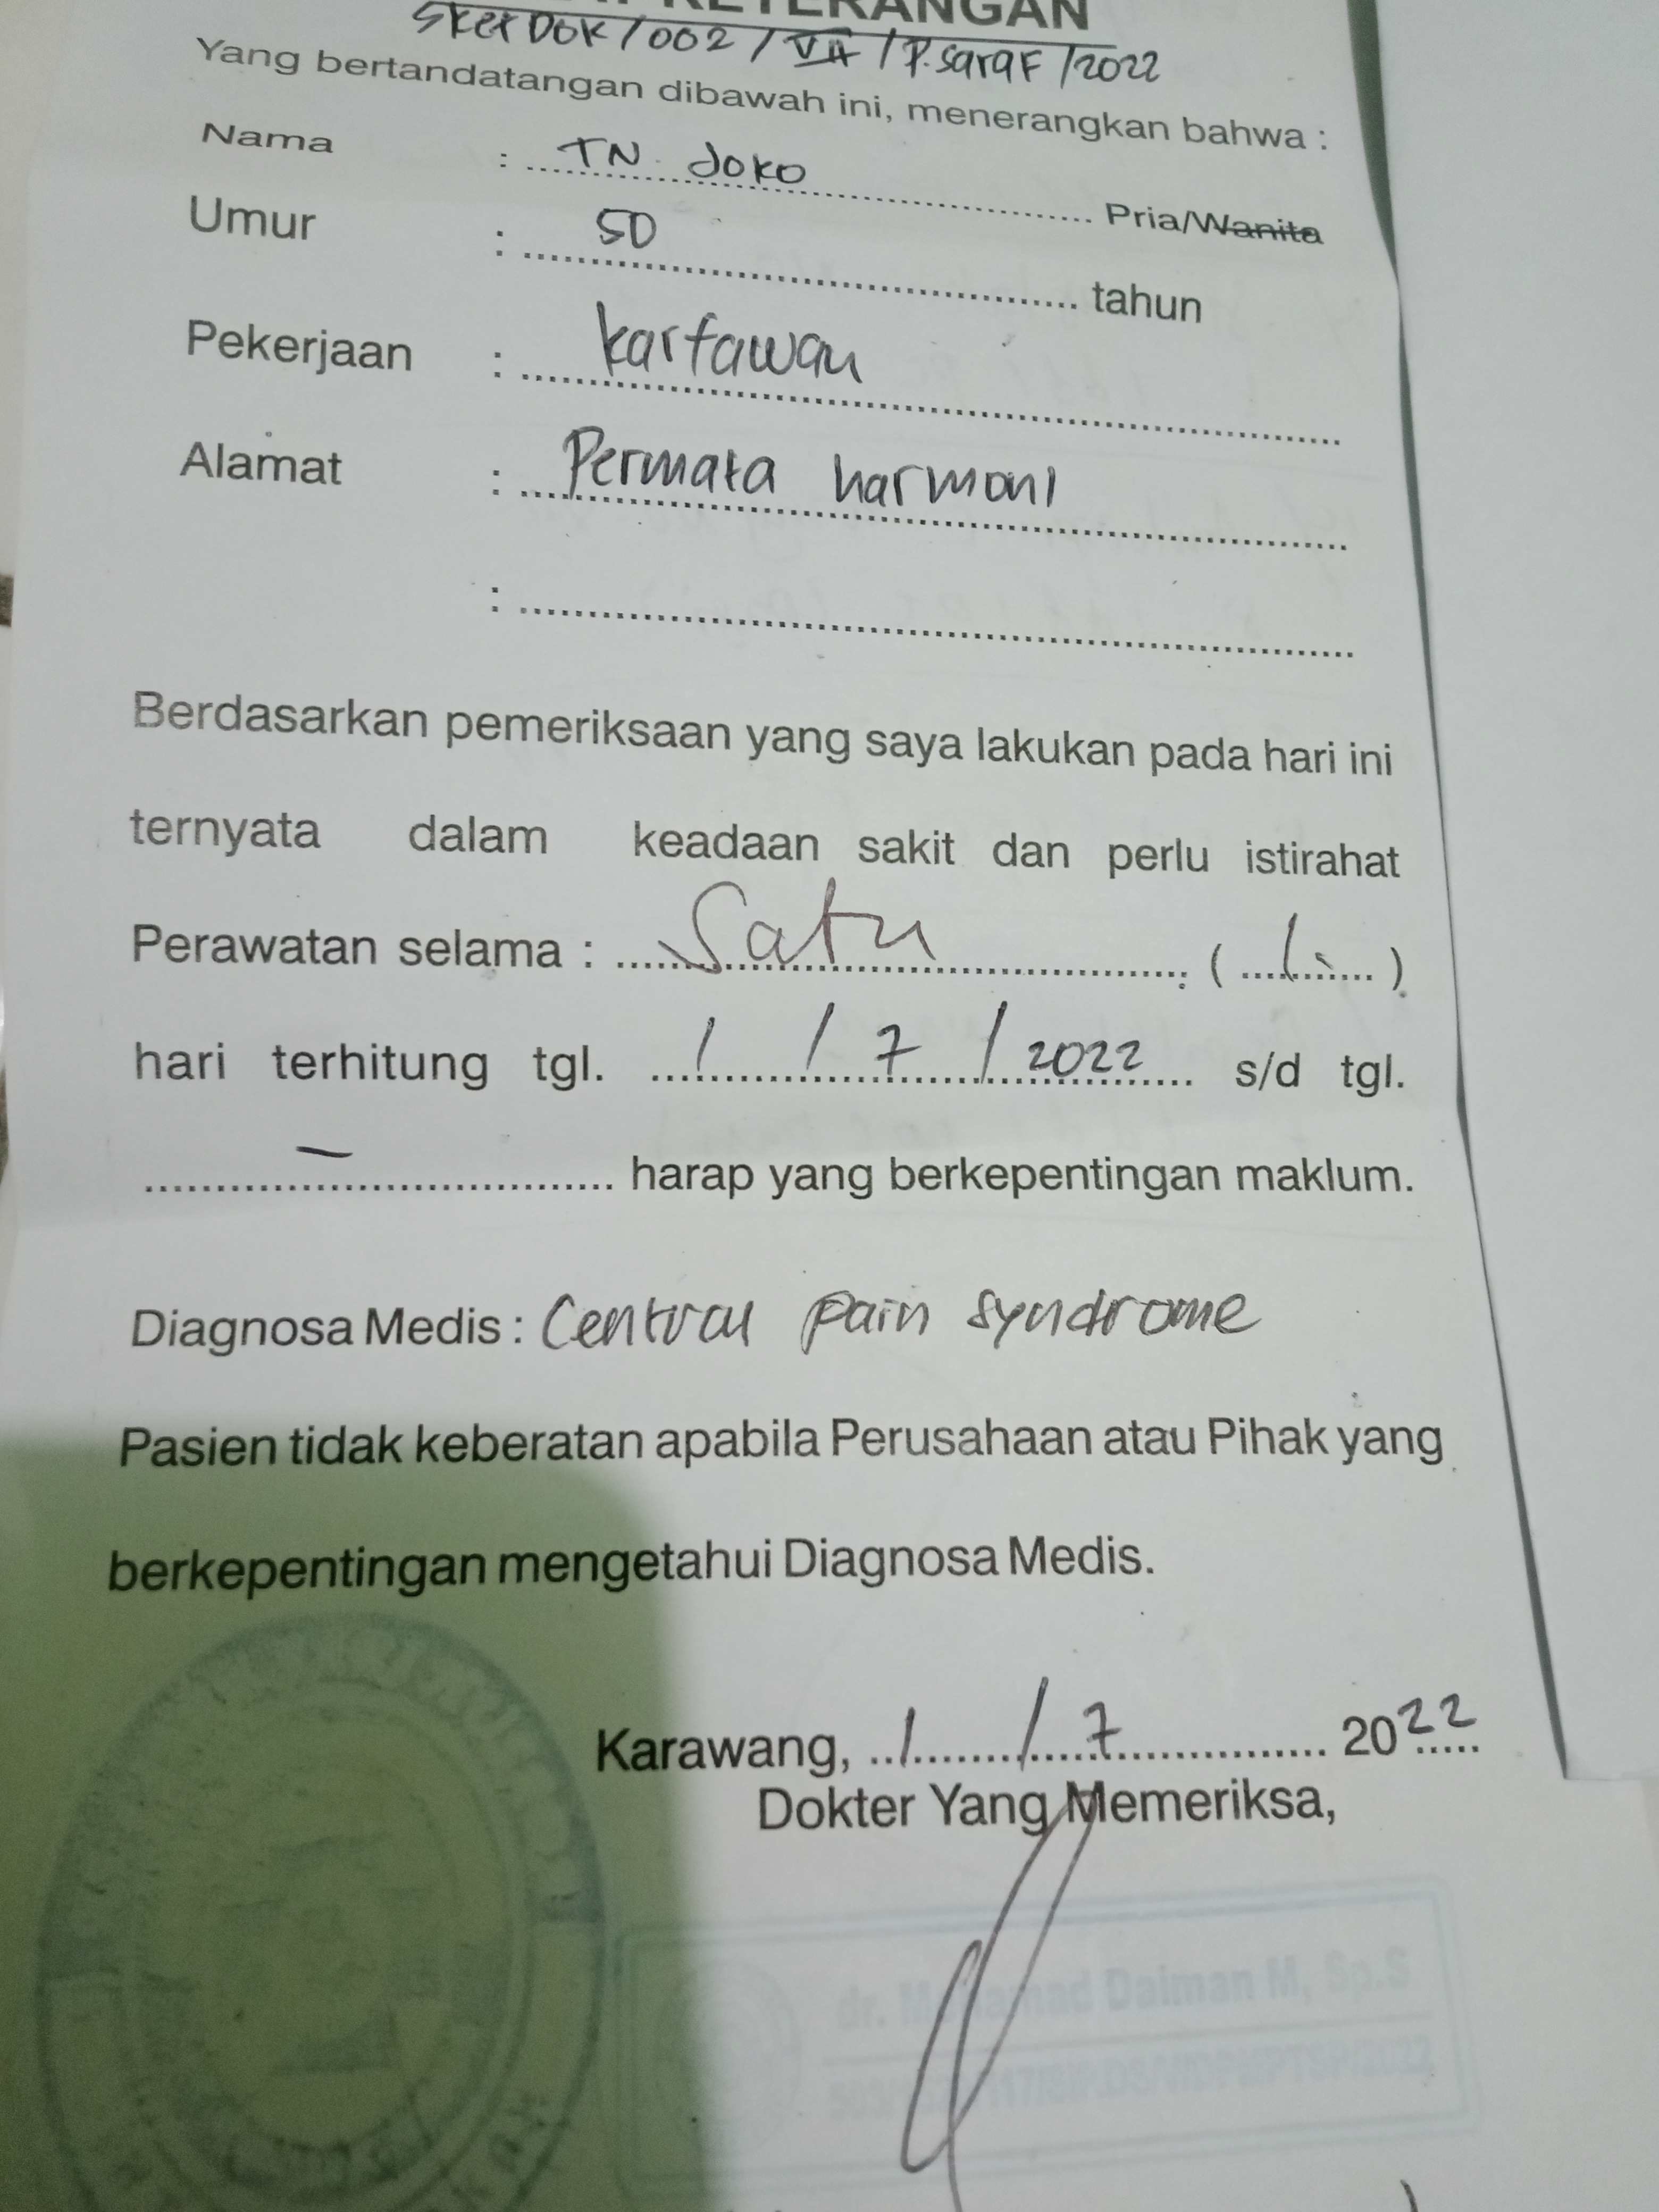 KETERANGAN
SketDok/002/VII/P.Saraf/2022
Yang bertandatangan dibawah ini, menerangkan bahwa :
Nama : TN. Joko Pria/Wanita
Umur : 50 tahun
Pekerjaan : karyawan
Alamat : Permata harmoni
:
Berdasarkan pemeriksaan yang saya lakukan pada hari ini
ternyata dalam keadaan sakit dan perlu istirahat
Perawatan selama : Satu ( 1 )
hari terhitung tgl. 1 / 7 / 2022 s/d tgl.
— harap yang berkepentingan maklum.
Diagnosa Medis : Central pain syndrome
Pasien tidak keberatan apabila Perusahaan atau Pihak yang
berkepentingan mengetahui Diagnosa Medis.
Karawang, 1 / 7 2022
Dokter Yang Memeriksa,
dr. Daiman M, Sp.S